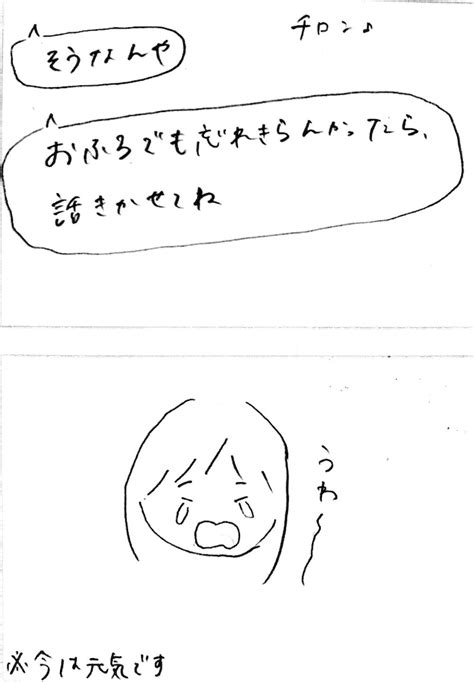 チロン♪
そうなんや
おふろでも忘れきらんかったら、
話きかせてね
うわ〜
※今は元気です